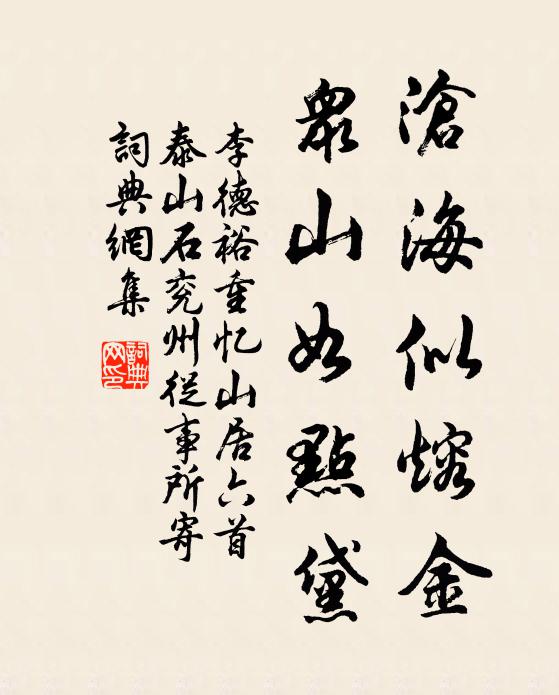 滄海似熔金
眾山如點黛
李德裕重忆山居六首
泰山石兖州從事所寄
詞典網集
詞典
网印